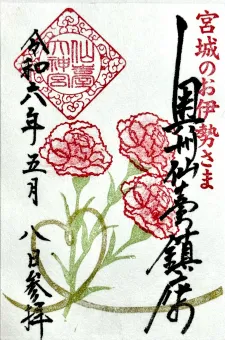 宮城のお伊勢さま
奥州仙臺鎮守
仙臺大神宮
令和六年五月
八日参拝